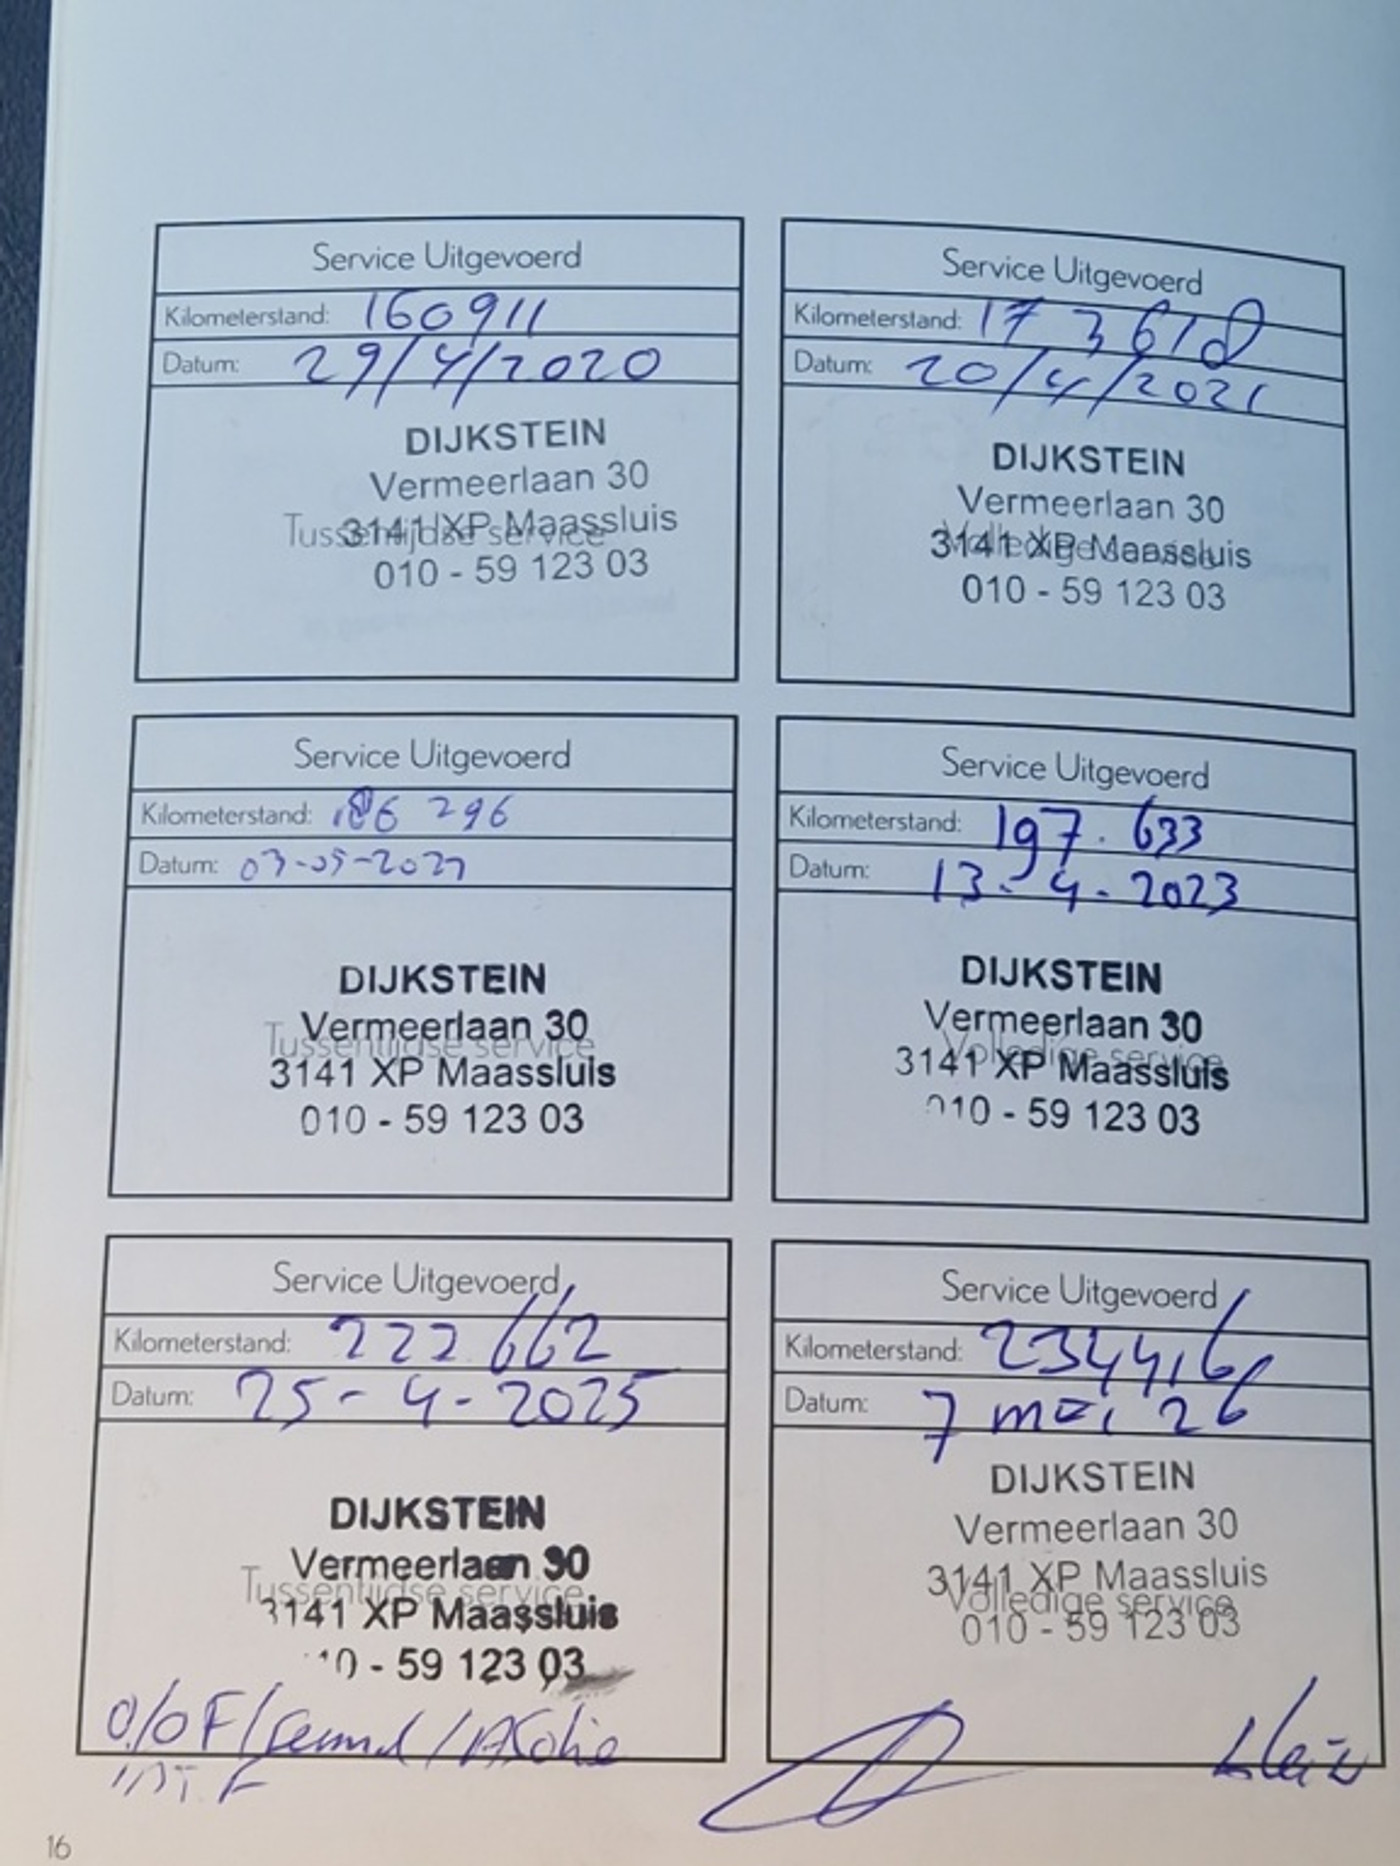 Service Uitgevoerd
Kilometerstand: 160911
Datum: 29/4/2020
DIJKSTEIN
Vermeerlaan 30
Tussentijdse service
3141 XP Maassluis
010 - 59 123 03
Service Uitgevoerd
Kilometerstand: 173618
Datum: 20/4/2021
DIJKSTEIN
Vermeerlaan 30
Volledige service
3141 XP Maassluis
010 - 59 123 03
Service Uitgevoerd
Kilometerstand: 186 296
Datum: 03-05-2022
DIJKSTEIN
Vermeerlaan 30
Tussentijdse service
3141 XP Maassluis
010 - 59 123 03
Service Uitgevoerd
Kilometerstand: 197.633
Datum: 13-4-2023
DIJKSTEIN
Vermeerlaan 30
Volledige service
3141 XP Maassluis
010 - 59 123 03
Service Uitgevoerd
Kilometerstand: 222.662
Datum: 25-4-2025
DIJKSTEIN
Vermeerlaan 30
Tussentijdse service
3141 XP Maassluis
10 - 59 123 03
O/OF/
Service Uitgevoerd
Kilometerstand: 234416
Datum: 7 mei 26
DIJKSTEIN
Vermeerlaan 30
3141 XP Maassluis
Volledige service
010 - 59 123 03
16